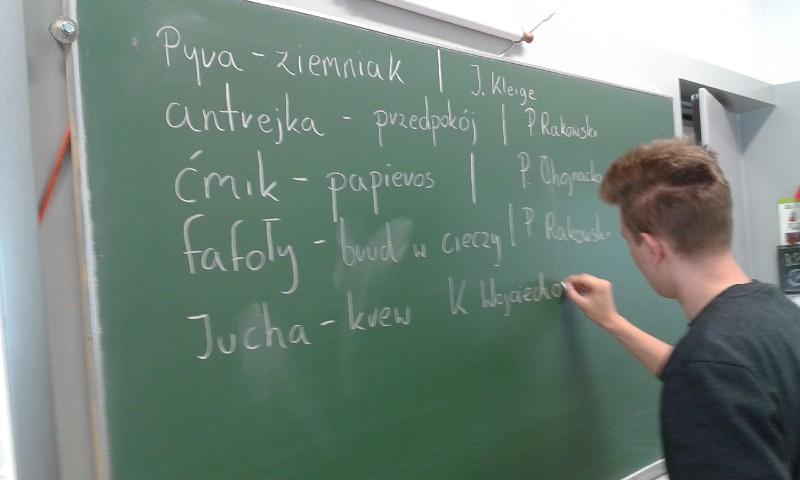 Pyra - ziemniak | J. Kleige
antrejka - przedpokój | P. Rakowski
ćmik - papieros | P. Chojnacko
fafoły - brud w cieczy | P. Rakowski
Jucha - krew K Wojciecho